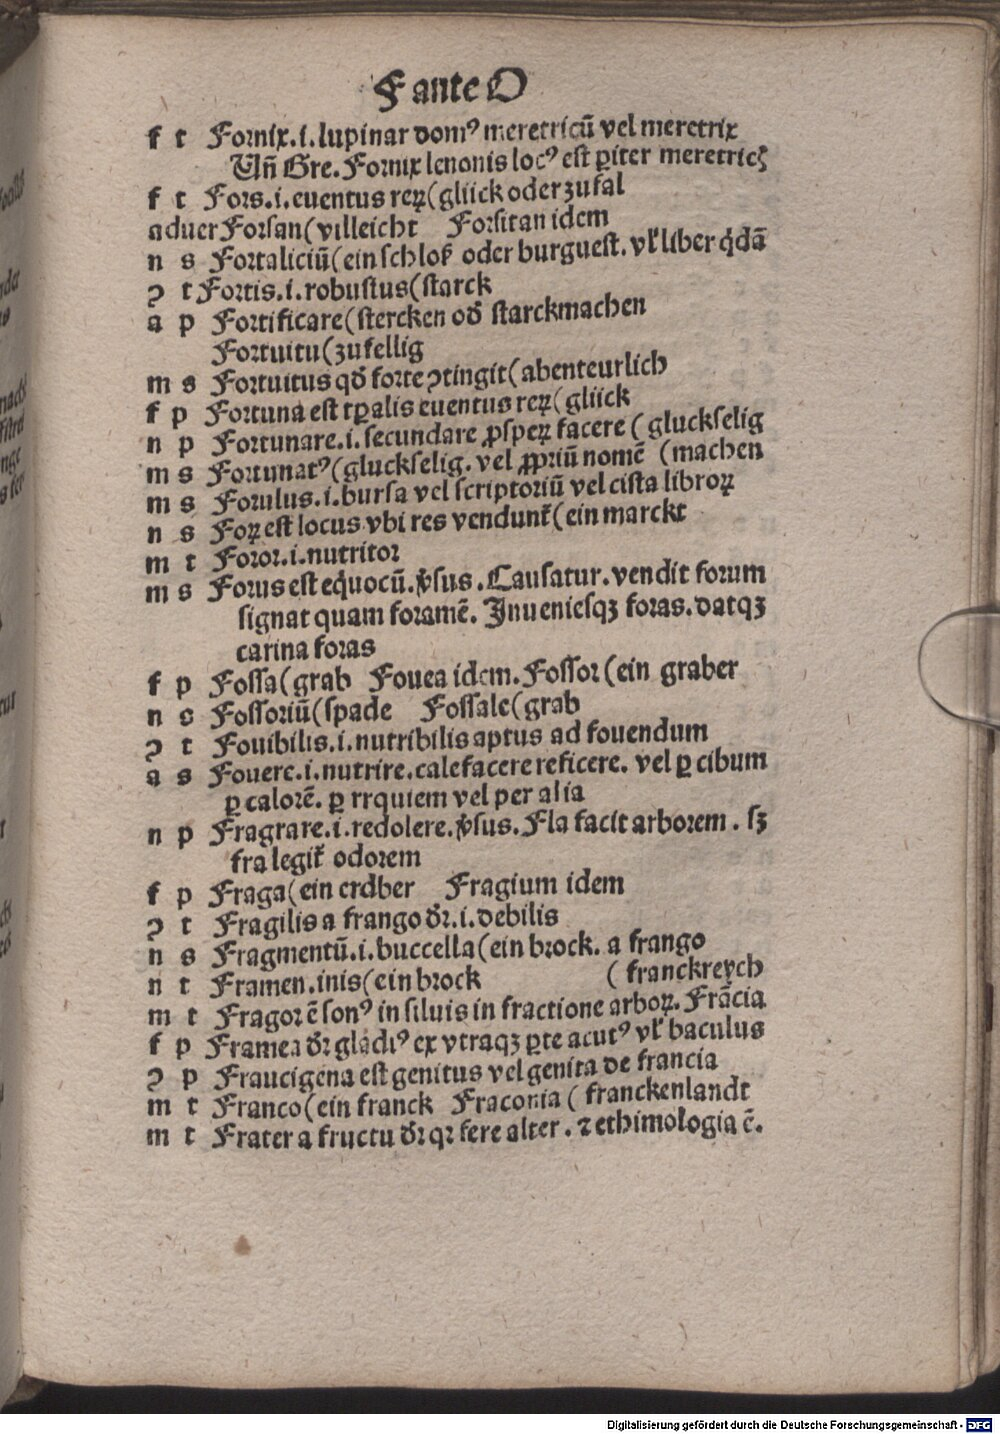 F ante O
f t Fornix.i.lupinar domꝰ meretricū vel meretrix
Vñ Gre. Fornix lenonis locꝰ est ꝑiter meretricꝫ
f t Fors.i.euentus reꝝ(glück oder zufal
aduer Forsan(villeicht Forsitan idem
n s Fortaliciū(ein schloß oder burguest. vl' liber q̇dā
ↄ t Fortis.i.robustus(starck
a p Fortificare(stercken od' starckmachen
Fortuitu(zufellig
m s Fortuitus qd' forte ↄtingit(abenteurlich
f p Fortuna est tꝑalis euentus reꝝ(glück
n p Fortunare.i.secundare ꝓspeꝝ facere (gluckselig
m s Fortunatꝰ(gluckselig. vel ꝓpriū nomē (machen
m s Forulus.i.bursa vel scriptoriū vel cista libroꝝ
n s Foꝝ est locus vbi res vendunt'(ein marckt
m t Foror.i.nutritor
m s Forus est eq̇uocū. v̇sus. Causatur. vendit forum
signat quam foramē. Inueniesqꝫ foras. datqꝫ
carina foras
f p Fossa(grab Fouea idem. Fossor(ein graber
n s Fossoriū(spade Fossale(grab
ↄ t Fouibilis.i.nutribilis aptus ad fouendum
a s Fouere.i.nutrire.calefacere reficere. vel ꝑ cibum
ꝑ calorē. ꝑ rrquiem vel per alia
n p Fragrare.i.redolere. v̇sus. Fla facit arborem. sꝫ
fra legit' odorem
f p Fraga(ein erdber Fragium idem
ↄ t Fragilis a frango dꝛ.i.debilis
n s Fragmentū.i.buccella(ein brock. a frango
n t Framen.inis(ein brock (franckreych
m t Fragor ē sonꝰ in siluis in fractione arboꝝ. Frācia
f p Framea dꝛ gladiꝰ ex vtraqꝫ ꝑte acutꝰ vl' baculus
ↄ p Fraucigena est genitus vel genita de francia
m t Franco(ein franck Fraconia (franckenlandt
m t Frater a fructu dꝛ qꝛ fere alter. ⁊ ethimologia ē.
Digitalisierung gefördert durch die Deutsche Forschungsgemeinschaft - DFG